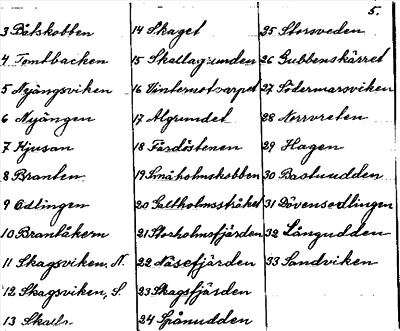 5.
3 Båtskobben
4 Tomtbacken
5 Nyängsviken
6 Nyängen
7 Kjusan
8 Branten
9 Edlingen
10 Brantåkern
11 Skagsviken, N.
12 Skagsviken, S.
13
14 Skaget
15 Skatlagrunden
16 Vinternotvarpet
17 Algrundet
18 Färdstenen
19 Småholmskobben
20 Galtholmsstråket
21 Storholmsfjärden
22 Näsefjärden
23 Skagsfjärden
24 Spånudden
25 Storsveden
26 Gubbenskärret
27 Södermarsviken
28 Norrvreten
29 Hagen
30 Bastuudden
31 Dövensedlingen
32 Långudden
33 Sandviken